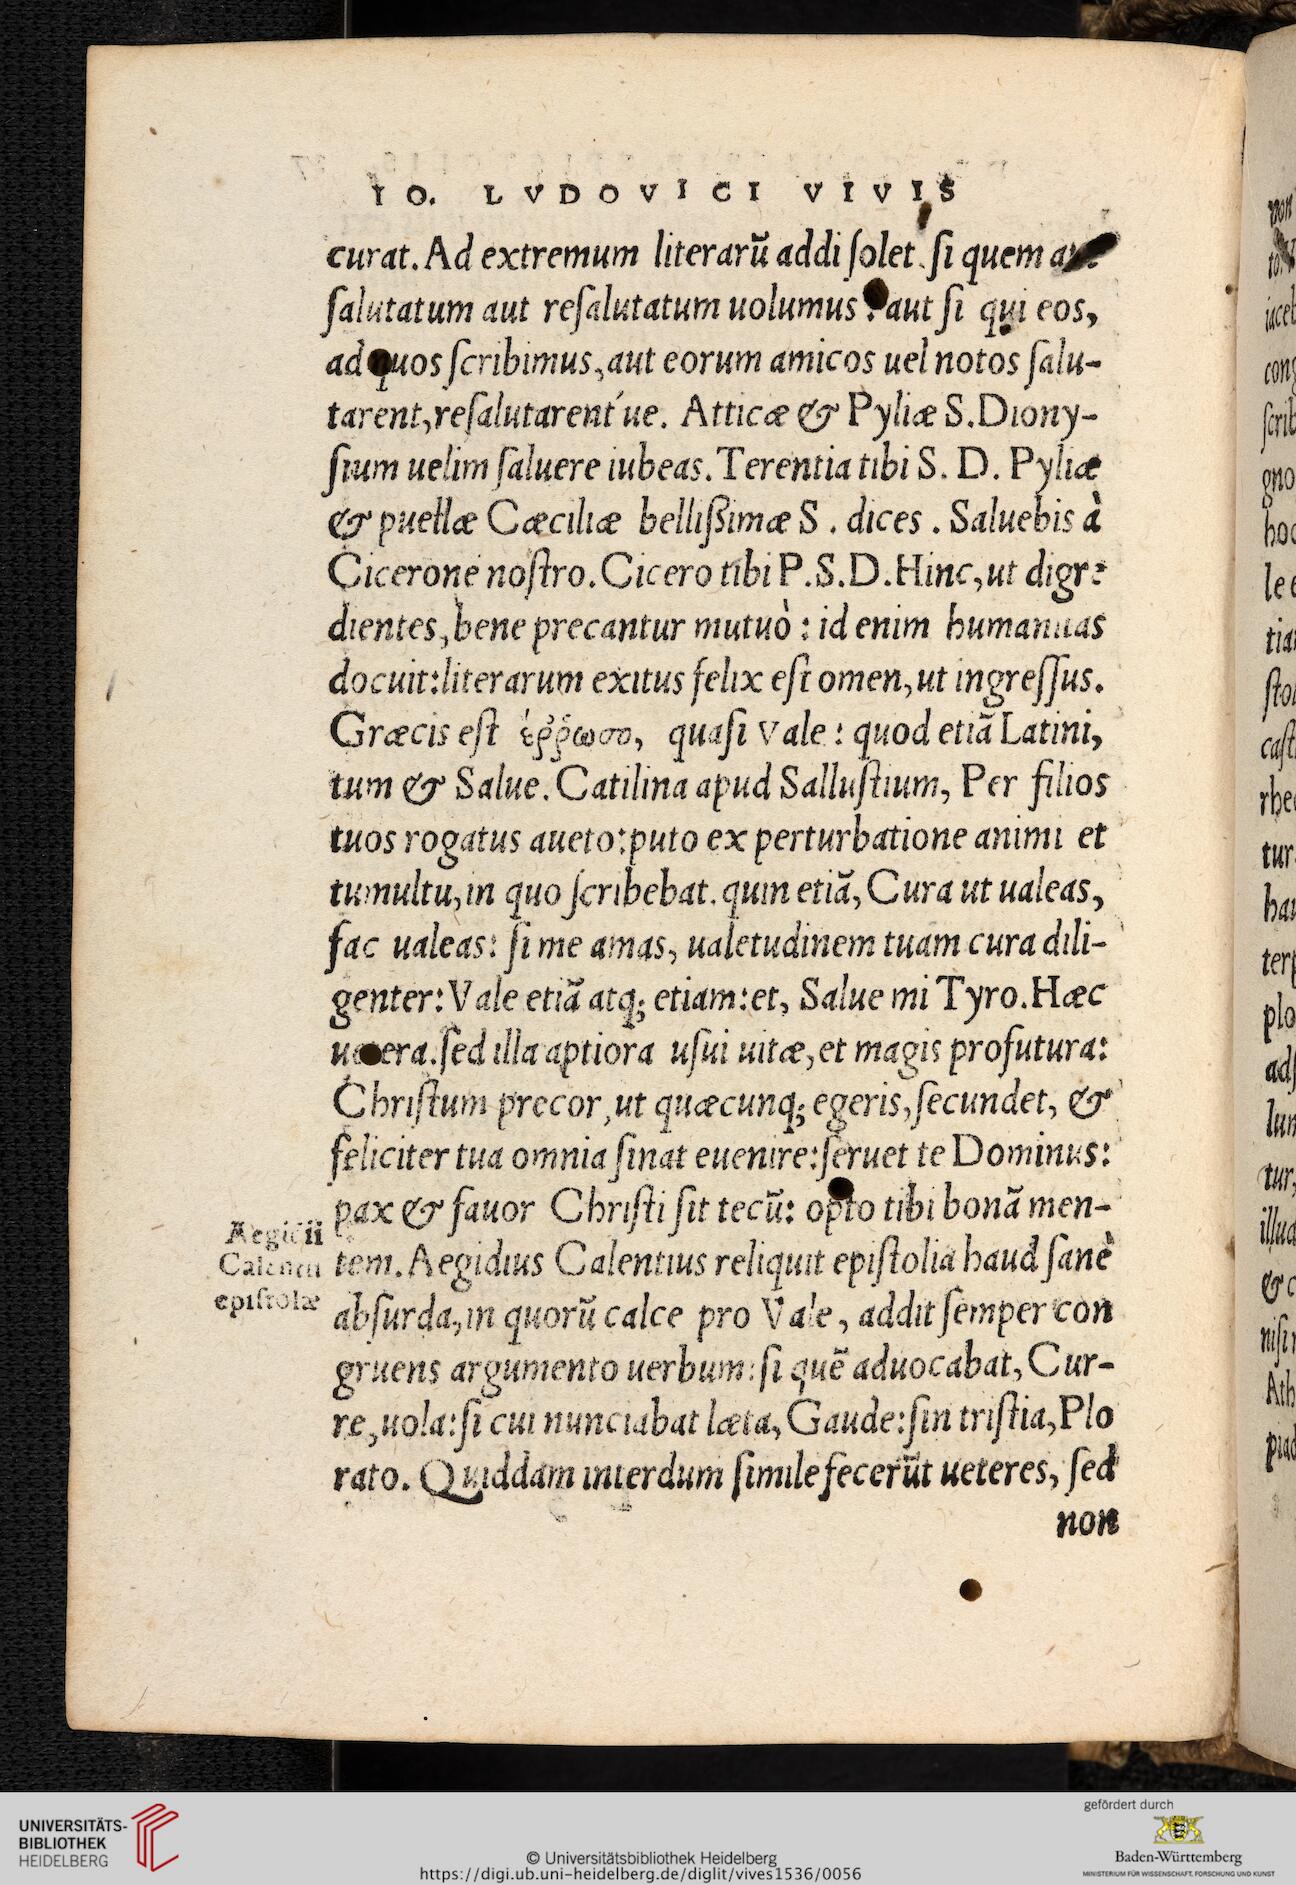 IO. LVDOVICI VIVIS
curat. Ad extremum literarũ addi ſolet, ſi quem
ſalutatum aut reſalutatum uolumus: aut ſi qui eos,
ad quos ſcribimus, aut eorum amicos uel notos ſalu-
tarent, reſalutarent´ue. Atticæ & Pyliæ S. Diony-
ſium uelim ſaluere iubeas. Terentia tibi S. D. Pyliæ
& puellæ Cæciliæ bellißimæ S. dices. Saluebis à
Cicerone noſtro. Cicero tibi P. S. D. Hinc, ut digre
dientes, bene precantur mutuò: id enim humanitas
docuit: literarum exitus felix eſt omen, ut ingreſſus.
Græcis eſt ἐῤῥωσο, quaſi Vale: quod etiã Latini,
tum & Salue. Catilina apud Salluſtium, Per filios
tuos rogatus aueto: puto ex perturbatione animi et
tumultu, in quo ſcribebat. quin etiã, Cura ut ualeas,
fac ualeas: ſi me amas, ualetudinem tuam cura dili-
genter: Vale etiã atq; etiam: et, Salue mi Tyro. Hæc
uetera. ſed illa aptiora uſui uitæ, et magis profutura:
Chriſtum precor, ut quæcunq; egeris, ſecundet, &
feliciter tua omnia ſinat euenire: ſeruet te Dominus:
pax & fauor Chriſti ſit tecũ: opto tibi bonã men-
tem. Aegidius Calentius reliquit epiſtolia haud ſanè
abſurda, in quorũ calce pro Vale, addit ſemper con
gruens argumento uerbum: ſi quẽ aduocabat, Cur-
re, uola: ſi cui nunciabat læta, Gaude: ſin triſtia, Plo
rato. Quiddam interdum ſimile fecerũt ueteres, ſed
non
Aegidii
Calentii
epiſtolæ
UNIVERSITÄTS-
BIBLIOTHEK
HEIDELBERG
© Universitätsbibliothek Heidelberg
https://digi.ub.uni-heidelberg.de/diglit/vives1536/0056
gefördert durch
Baden-Württemberg
MINISTERIUM FÜR WISSENSCHAFT, FORSCHUNG UND KUNST